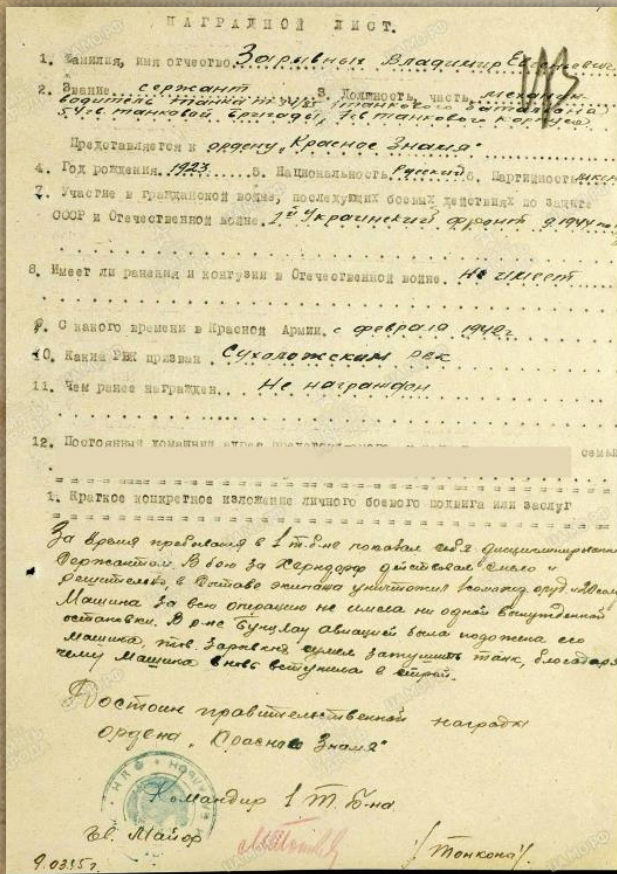 НАГРАДНОЙ ЛИСТ.
1. Фамилия, имя отчество. Зарывных Владимир Евгеньевич
2. Звание сержант 3. Должность, часть механик-
водитель танка танкового батальона
54 гв. танковой бригады, 7 гв танкового корпуса
Представляется к ордену „Красное Знамя"
4. Год рождения. 1923 5. Национальность Русский 6. Партийность
7. Участие в гражданской войне, последующих боевых действиях по защите
СССР и Отечественной войне. 1й Украинский фронт 1944
8. Имеет ли ранения и контузии в Отечественной войне. Не имеет
9. С какого времени в Красной Армии. с февраля 1942г
10. Каким РВК призван. Сухоложским рвк
11. Чем ранее награжден. Не награжден
12. Постоянный домашний адрес
1. Краткое конкретное изложение личного боевого подвига или заслуг
За время пребывания в 1 т.б-не показал себя дисциплинированным
Сержантом. В бою за Херндорф действовал смело и
решительно, в составе экипажа уничтожил 1 самоход. оруд. и 20 солд
Машина за всю операцию не имела ни одной вынужденной
остановки. В р-не Бунцлау авиацией была подожена его
машина, тов. Зарывных сумел затушить танк, благодаря
чему машина вновь вступила в строй.
Достоин правительственной награды
ордена „Красное Знамя"
Командир 1 Т. Б-на
Гв. Майор /Тонконог/
9.03.45г.
ЦАМО.РФ